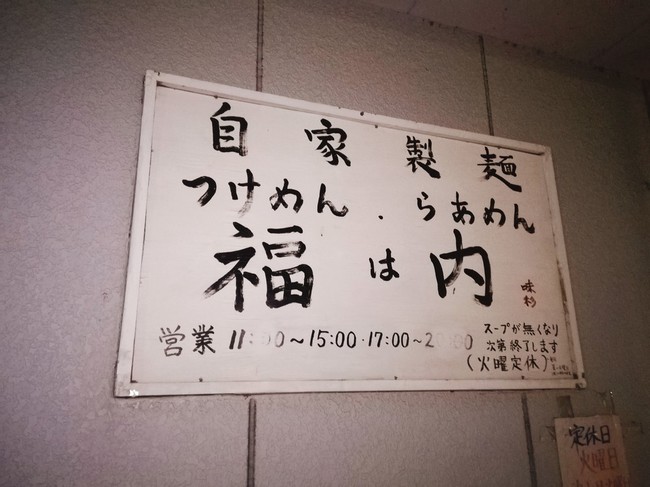 自家製麺
つけめん.らあめん
福は内
味杉
営業 11:00~15:00・17:00~2
スープが無くなり
次第終了します
(火曜定休)
定休日
火曜日